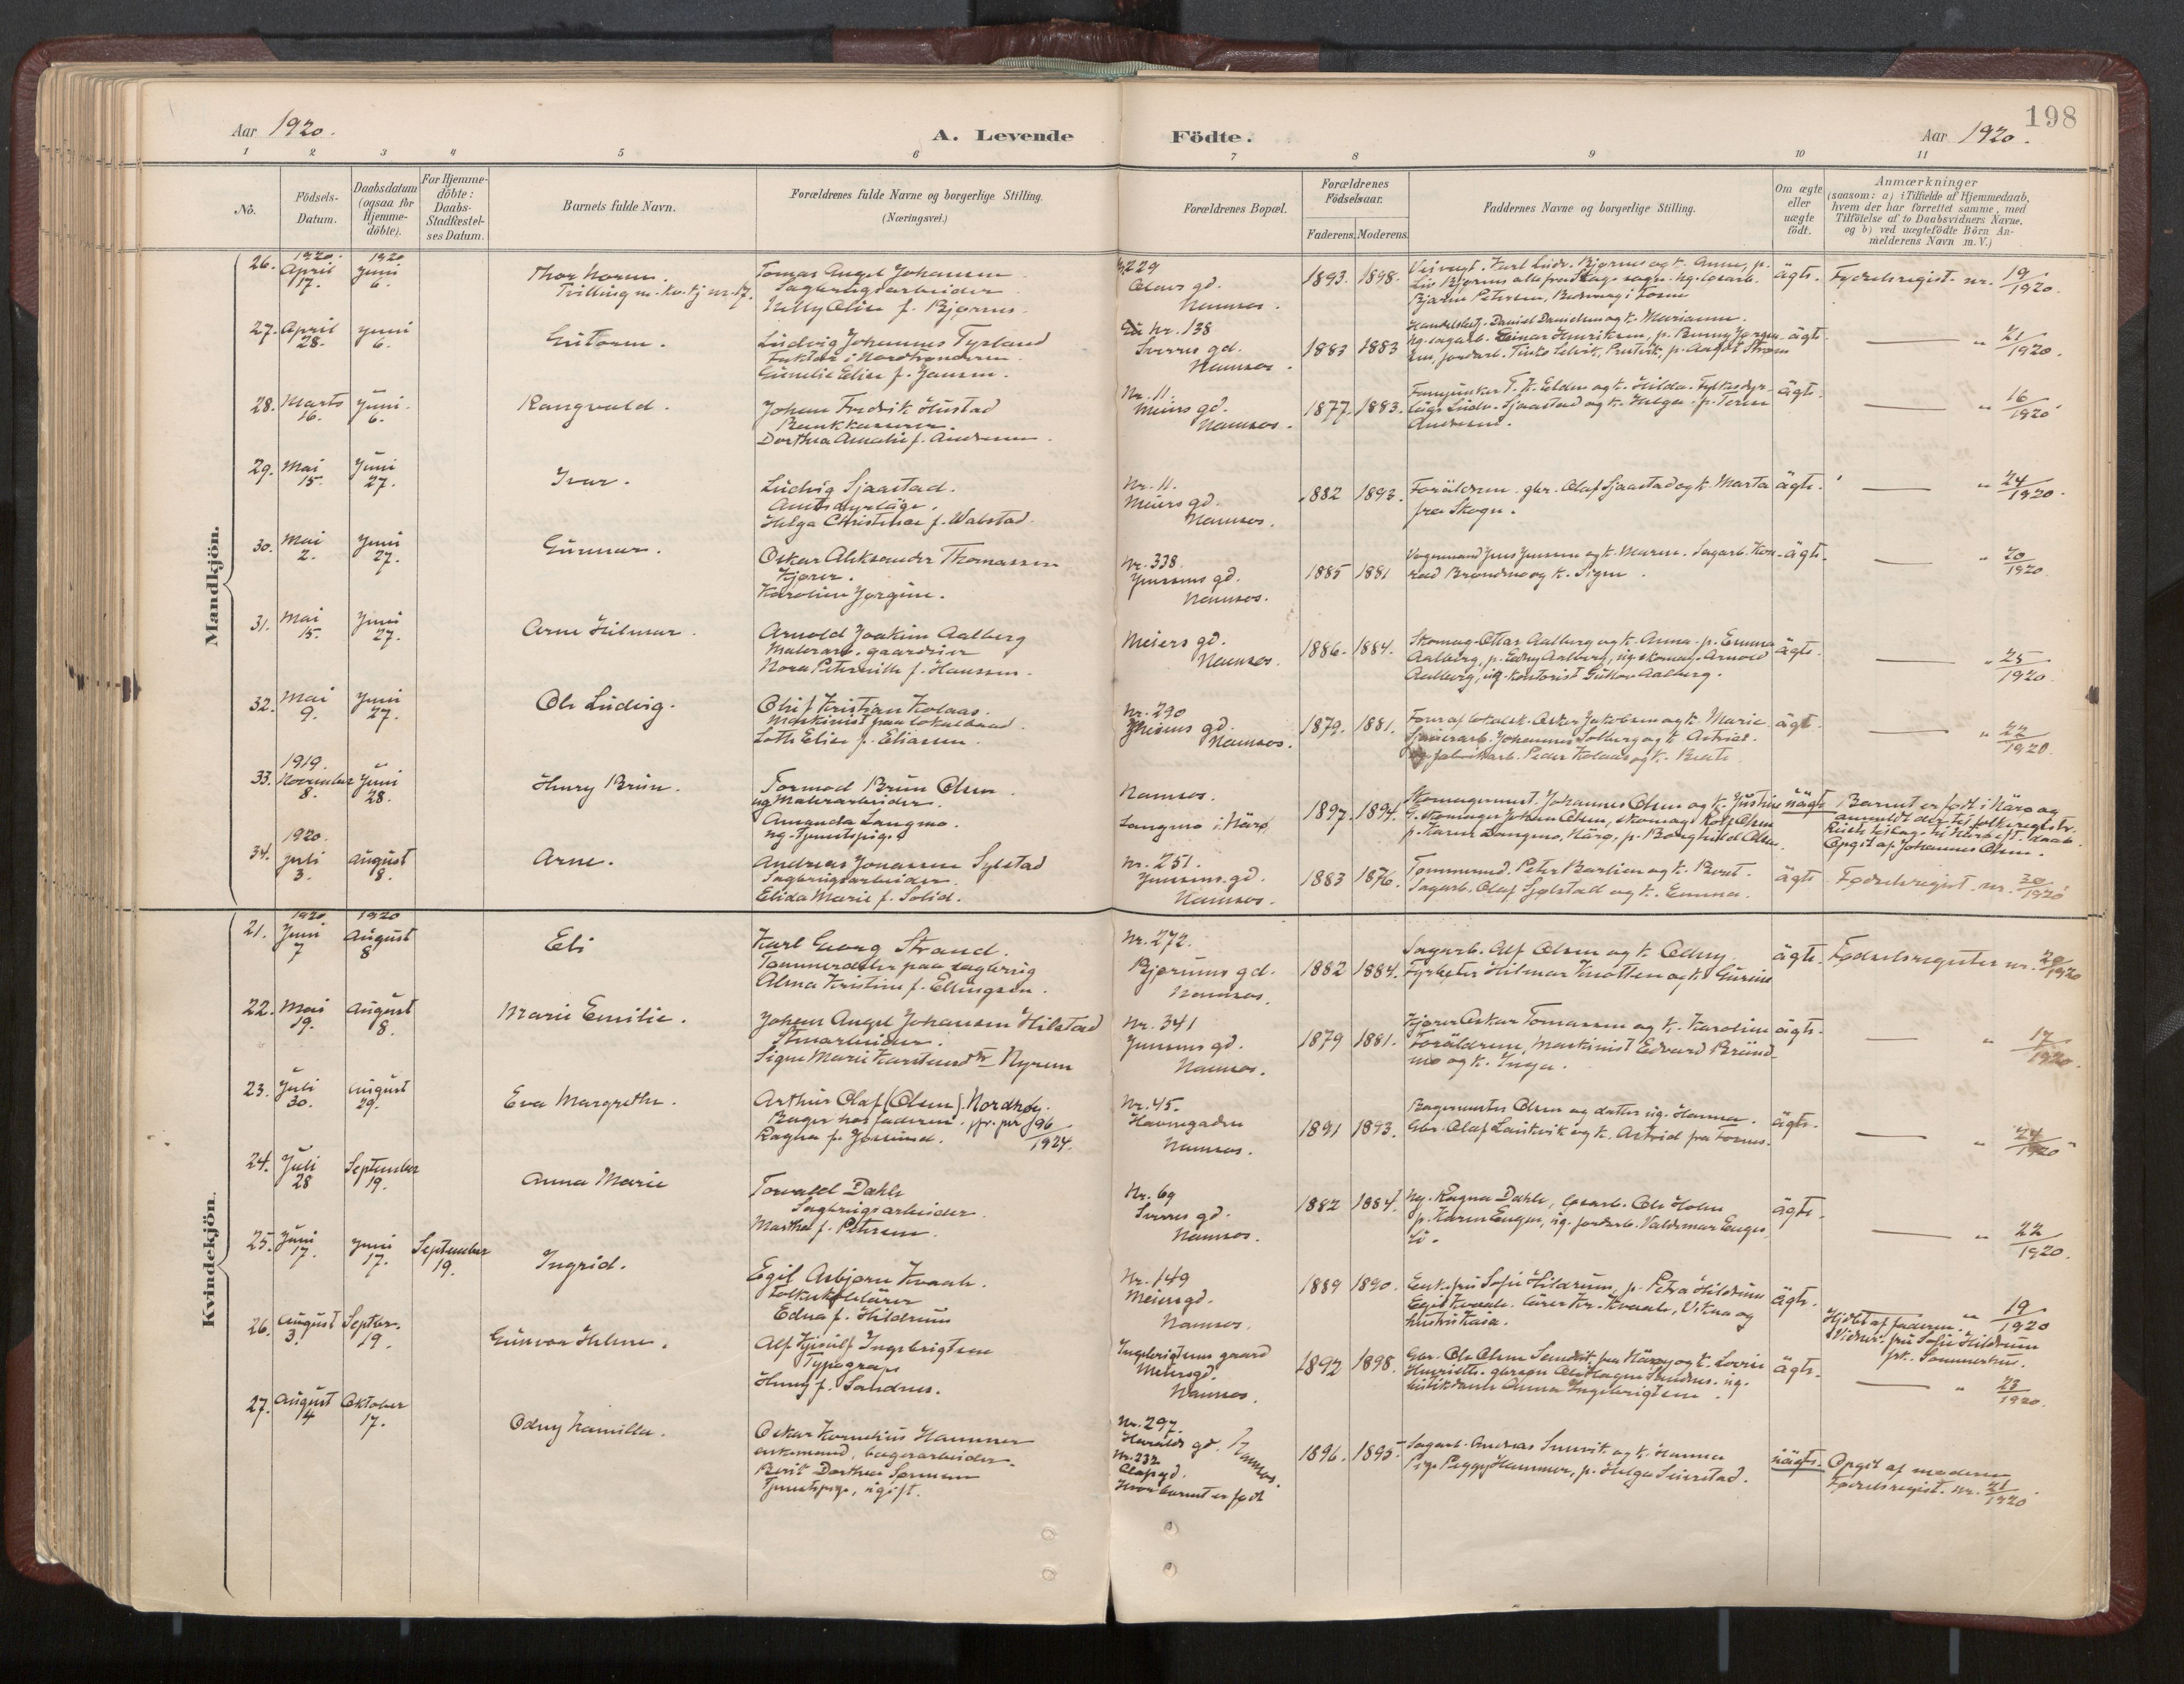 198
Aar 1920.
A. Levende Födte.
Aar 1920.
1 2 3 4 5 6 7 8 9 10 11
Nô.
Födsels-Datum.
Daabsdatum (ogsaa for Hjemme-döbte).
For Hjemme-döbte: Daabs-Stadfæstel-ses Datum.
Barnets fulde Navn.
Forældrenes fulde Navne og borgerlige Stilling.
(Næringsvei.)
Forældrenes Bopæl.
Forældrenes Födselsaar.
Faderens. Moderens.
Faddernes Navne og borgerlige Stilling.
Om ægte eller uægte födt.
Anmærkninger
(saasom: a) i Tilfælde af Hjemmedaab,
hvem der har forrettet samme, med
Tilföielse af to Daabsvidners Navne.
og b) ved uægtefödte Börn An-
melderens Navn m. V.)
Mandkjön.
26. 1920. April 17. 1920 Juni 6.
Thor
Tvilling m. kv. kj nr. 17.
Tomas Angel Johansen
Sagbrugsarbeider
f. Bjørnes
229
Olavs gd.
Namsos.
1893. 1898.
ägte.
Fødselsregist. nr. 19/1920.
27. April 28. Juni 6.
Guttorm.
Ludvig Johannes Tysland
Faktor i Nordtrønderen.
f. Jansen.
nr. 138
Sverres gd.
Namsos.
1883 1883
Handelsbetj. Daniel Danielsen og k. Marianne.
ägte.
" 21/1920.
28. Marts 16. Juni. 6.
Rangvald.
Johan Fredrik Hustad
Bankkasserer.
Dorthea Amalie f. Andresen.
Nr. 11.
Meiers gd.
Namsos.
1877. 1883.
Andresen.
ägte.
" 16/1920
29. Mai 15. Juni 27.
Ivar.
Ludvig Sjaastad.
Amtsdyrläge.
Helga Christense f. Walstad.
Nr. 11.
Meiers gd.
Namsos.
1882 1893.
Foräldrene. gbr. Olaf Sjaastad og k. Marta
fra Skogn.
ägte.
" 24/1920.
30. Mai 2. Juni 27.
Gunnar.
Oskar Aleksander Thomassen
Kjører.
Karoline Jørgine.
Nr. 338.
Jensens gd.
Namsos.
1885 1881
Vognmand Jens Jensen og k. Maren. Sagarb. Kon-
rad Brøndmo og k. Signe.
ägte.
" 20/1920.
31. Mai 15. Juni 27.
Arne Hilmar.
Arnold Joakim Aalberg
Malerarb. gaardeier
Nora Peternille f. Hansen.
Meiers gd.
Namsos.
1886. 1884.
Skomag. Ottar Aalberg og k. Anna. p. Emma
Aalberg, p. Edny Aalberg, ug. skomag. Arnold
Aalberg, ug. kontorist Gustav Aalberg.
ägte.
" 25/1920.
32. Mai 9. Juni 27.
Ole Ludvig.
Oluf Kristian Kolaas.
Maskinist paa lokalbaad.
Lotte Elise f. Eliassen.
Nr. 290
Meiers gd.
Namsos.
1879. 1881.
Oskar Jakobsen og k. Marie
Johannes Solberg og k. Astrid.
Peder Kolaas og k. Beate.
ägte.
" 22/1920.
33. 1919. November 8. Juni 28.
Henry Brun.
Tormod Brun Olsen
ug Malerarbeider.
Amanda Langmo.
ug. Tjenestepige.
Namsos.
Langmo i Närø
1897. 1894.
Skomagermest. Johannes Olsen og k. Justine
G. skomager Johan Olsen, skomag. Rolf Olsen
p. Karen Langmo, Närø, p. Borghild Olsen.
uägte
Barnet er født i Närø og
anmeldt der til folkeregistr.
Opgit af Johannes Olsen.
34. 1920. Juli 3. August 8.
Arne.
Andreas Jonassen Sylstad
Sagbrugsarbeider
Elida Marie f. Solid.
Nr. 251.
Jensens. gd.
Namsos.
1883 1876.
Tømmermd. Peter Barlien og k. Berit.
Sagarb. Olaf Sjølstad og k. Emma.
ägte.
Fødselsregist. nr. 30/1920
Kvindekjön.
21. 1920 Juni 7 1920 August 8
Eli
Karl Georg Strand.
Tømmerdeler paa sagbrug
Alma Kristine f. Ellingsen.
Nr. 272.
Bjørums gd.
Namsos.
1882 1884.
Sagarb. Alf Olsen og k. Odny.
Fyrbøter Hilmar Knotten og k. Gurine
ägte.
Fødselsregister nr. 20/1920
22. Mai 19. August 8.
Marie Emilie.
Johan Angel Johansen Hilstad
Stenarbeider.
Signe Marie Karstensdtr Nyrem
Nr. 341
Jensens gd.
Namsos.
1879 1881.
Kjører Oskar Tomassen og k. Karoline
Foräldrene, Maskinist Edvard Brønd-
mo og k. Inga.
ägte.
" 17/1920.
23. Juli 30. August 29.
Eva Margrethe.
Arthur Olaf (Olsen) Nordhøy.
Bager hos faderen. 196/1924.
Ragna f. Jøssund.
Nr. 45.
Havnegaden
Namsos.
1891 1893.
Bagermester Olsen og datter ug. Hanna.
Gbr. Olaf Lauvik og k. Astrid fra Fosnes.
ägte.
" 24/1920
24. Juli 28 September 19.
Anna Marie
Torvald Dahle
Sagbrugsarbeider.
Marthe f. Petersen.
Nr. 69
Sverres gd.
Namsos.
1882 1884.
Ug. Ragna Dahle, losarb. Ole Holm
p. Karen Enger, ug. jordarb. Valdemar Enges
li.
ägte.
" 22/1920.
25. Juni 17. Juni 17. September 19.
Ingrid.
Egil Asbjørn Kvaale.
Folkeskolelärer
Edna f. Hildrum
Nr. 149
Meiers gd.
Namsos.
1889 1890.
Enkefru Sofie Hildrum, p. Petra Hildrum
Egil Kvaale. lärer Kr. Kvaale, Vikna og
hustru Kasa.
ägte.
" 19/1920
Hjdøbt af faderen.
Vidner: fru Sofie Hildrum
frk. Sommerhus.
26. August 3. Septbr. 19.
Gunvor Helene.
Alf Kjeiulf Ingebrigtsen
Typograf
Henny f. Sandnes.
Ingebrigtsens gaard
Meiersgd.
Namsos.
1892 1898.
Anna Ingebrigtsen.
ägte.
" 23/1920.
27. August 4 Oktober 17.
Odny Kamilla.
Oskar Kornelius Hammer
enkemand, bagerarbeider.
Berit Dorthea Sørensen
Tjenestepige, ugift.
Nr. 297.
Haralds gd. Namsos.
Nr. 232
Olafs gd.
Hvor barnet er født
1896. 1895
Sagarb. Andreas Sunvik og k. Hanna
Pige Peggy Hammer, p. Helga Seierstad.
uägte.
Opgit af moderen
Fødselsregist. nr. 21/1920